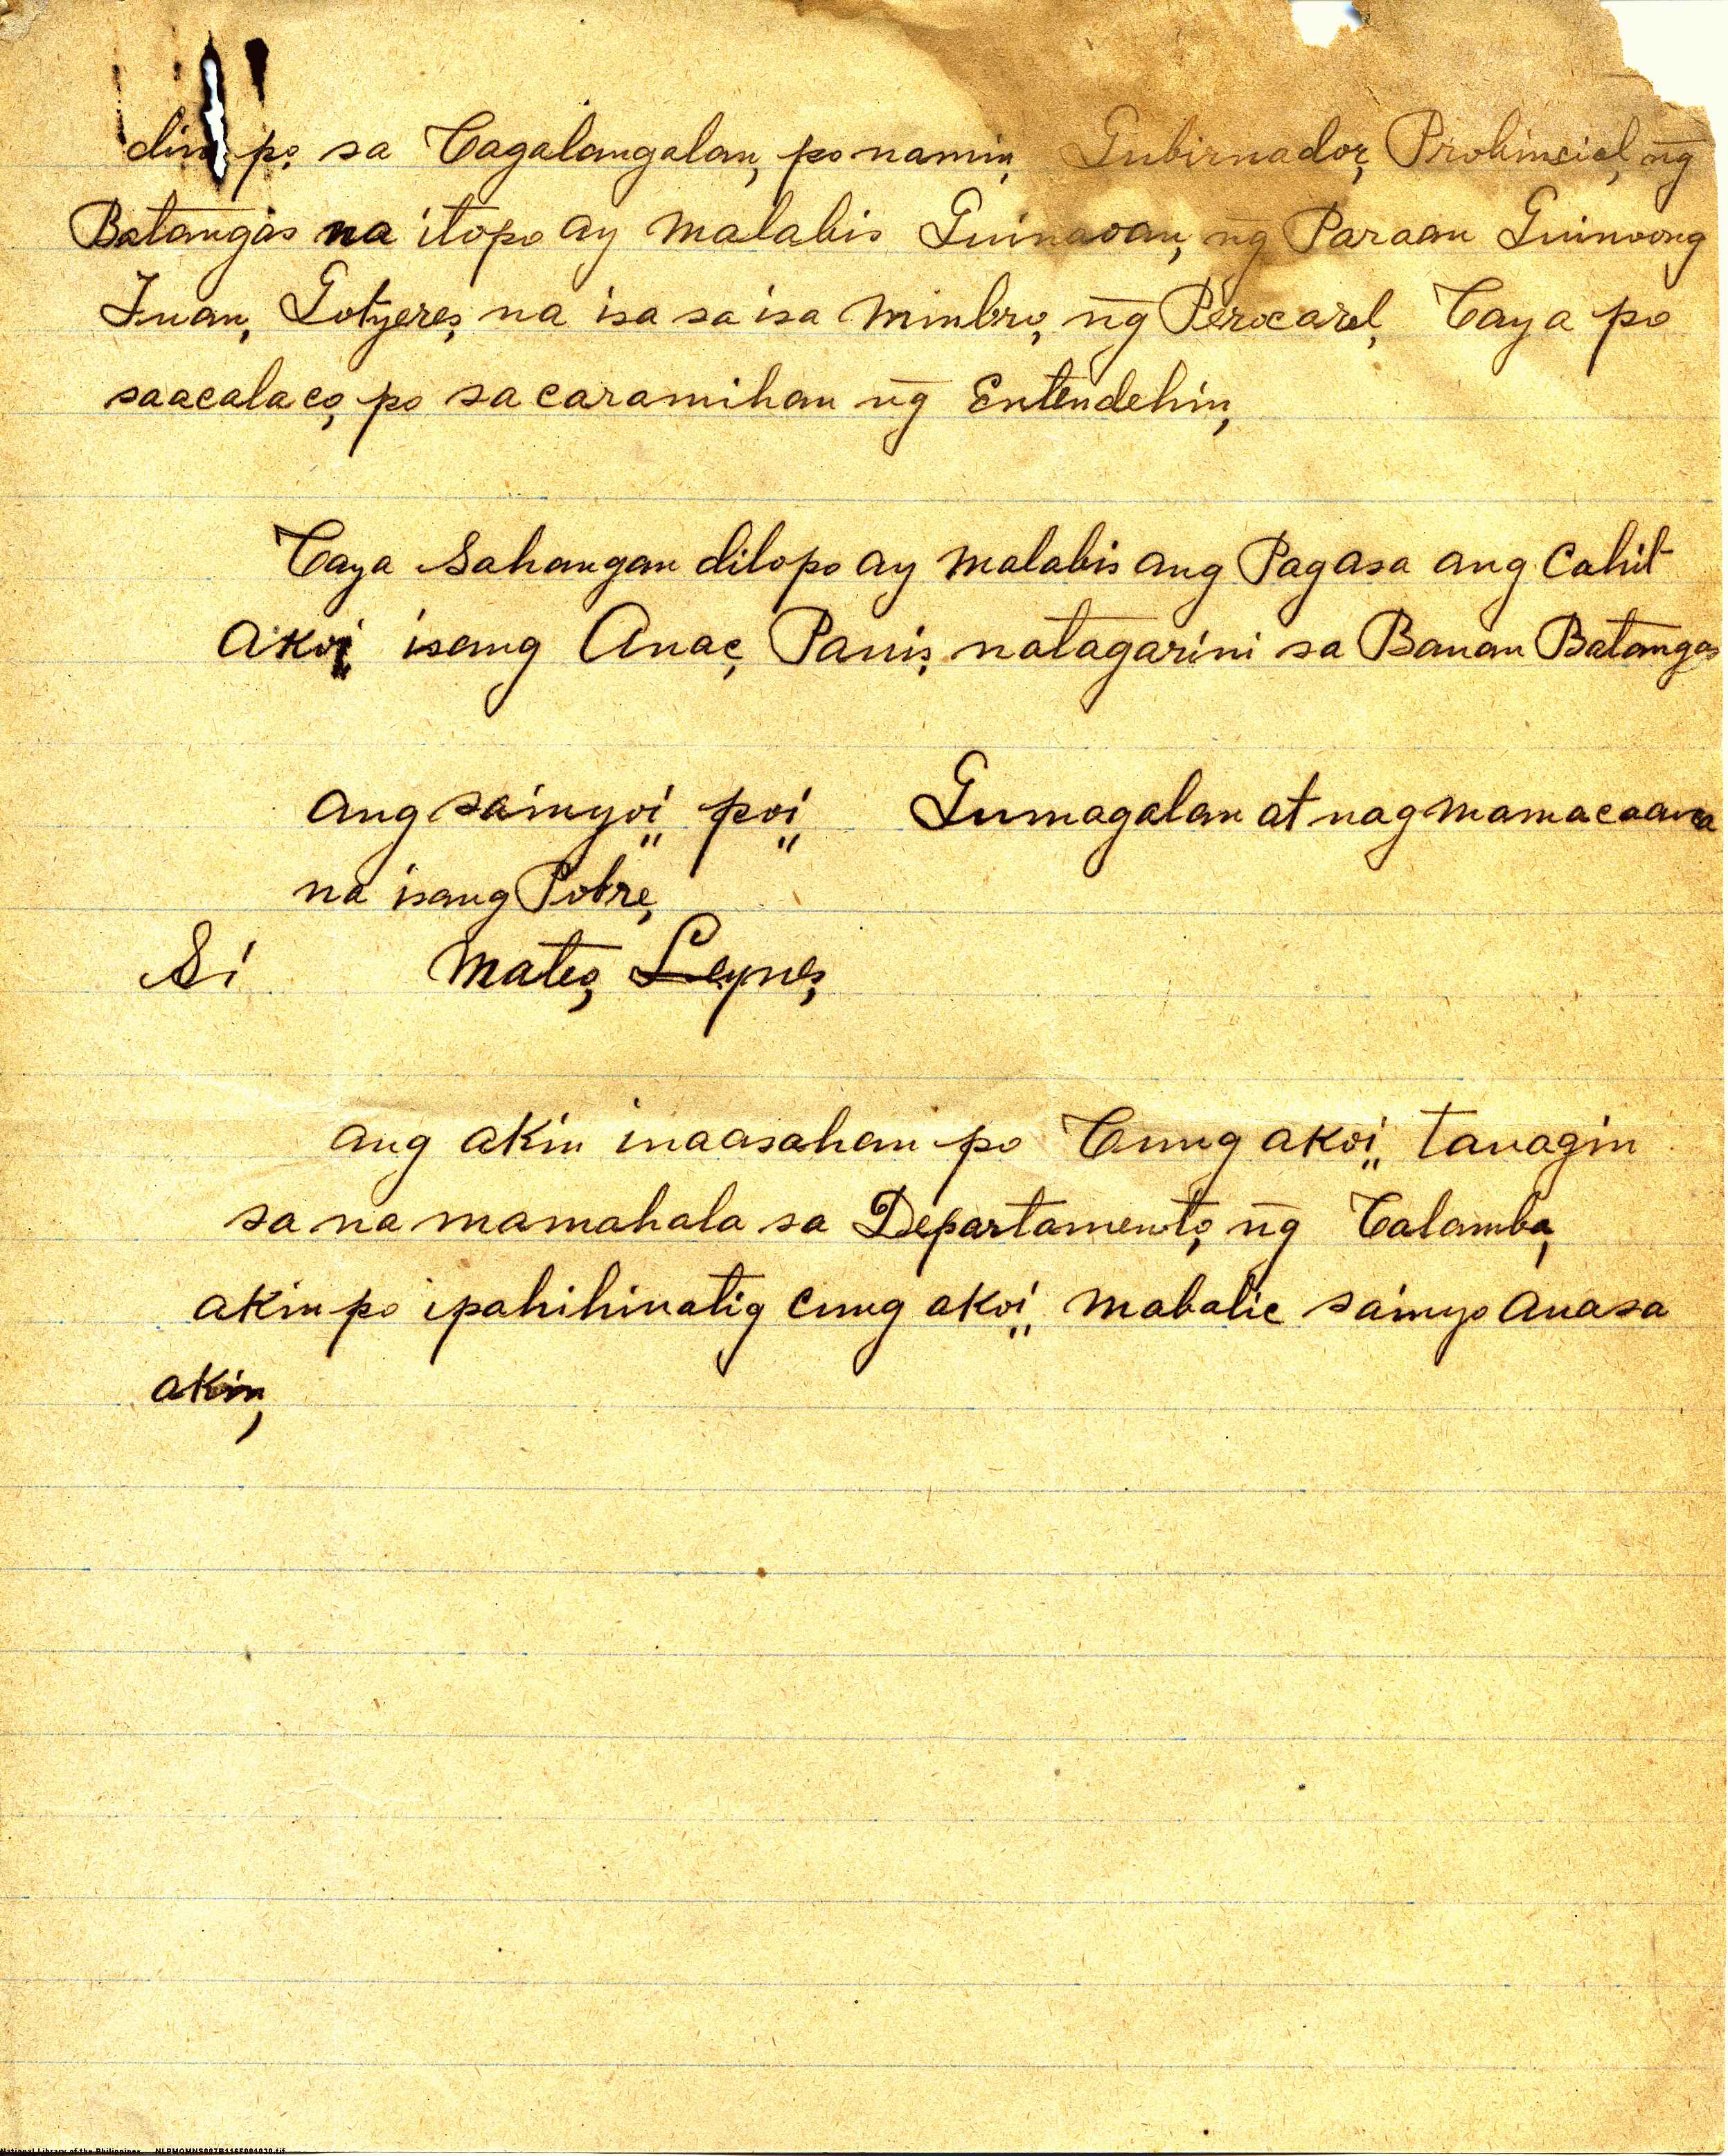 din po sa Cagalangalan, po namin, Gubirnador, Prohinsial, ng̃
Batangas na itopo ay malabis Guinaoan, ng̃ Paraan Guinoong
Juan, Gotyeres, na isa sa isa minbro, ng̃ Perocarel, Caya po
saacalaco, po sa caramihan ng̃ Entendehin,
Caya Sahangan dilopo ay malabis ang Pagasa ang Cahit
akoi,, isang Anac, Panis, natagarini sa Banan Batangas
ang sainyoi,, poi,, Gumagalan at nagmamacaava
na isang Pobre,
Si Mateo, Leynes,
ang akin inaasahan po Cung akoi,, tauagin
sa na mamahala sa Departamento, ng̃ Calamba,
akin po ipahihinatig cung akoi,, mabalic sainyo auasa
akin,
National Library of the Philippines